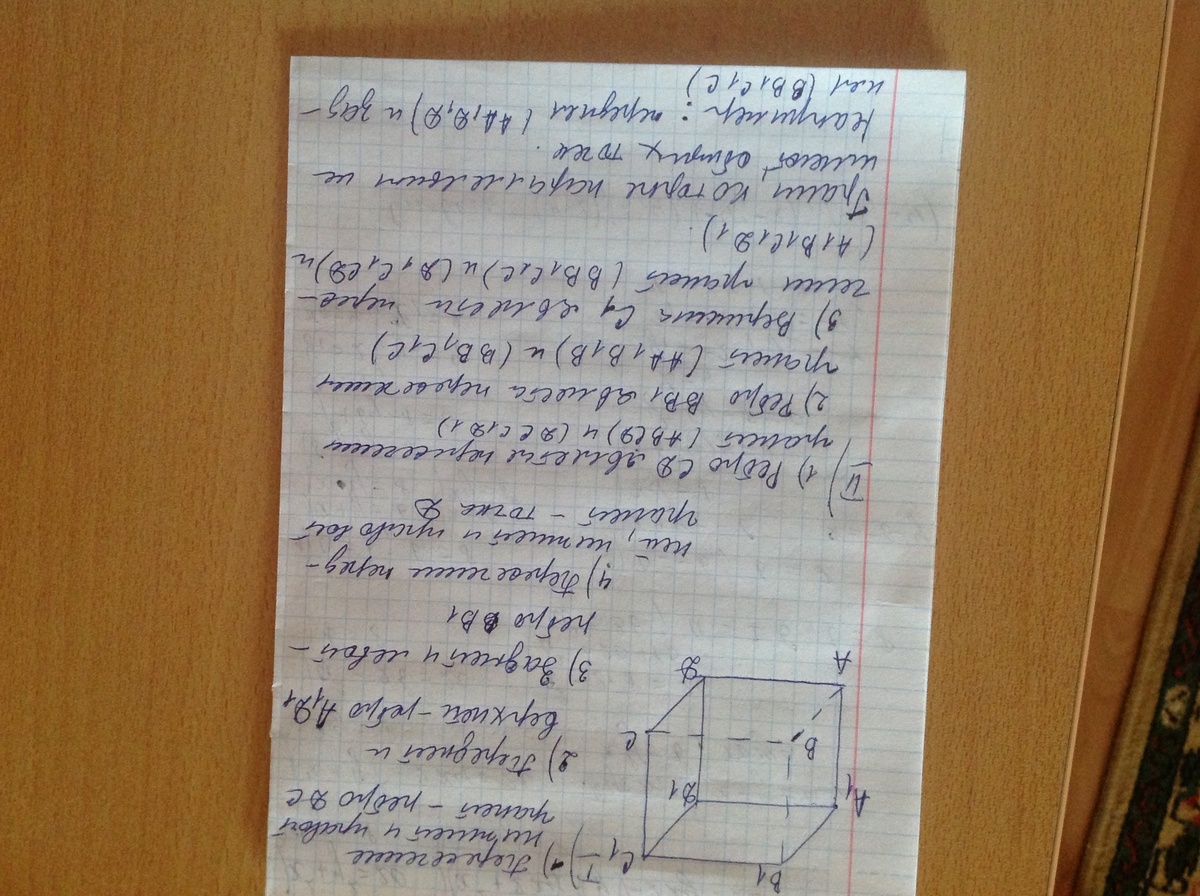 I) 1) Пересечение
нижней и правой
граней – ребро ДС
2) Передней и
верхней – ребро А1Д1
3) Задней и левой –
ребро ВВ1
4) Пересечение перед–
ней, нижней и правой
граней – точка Д
B1
C1
A1
Д1
B
C
A
Д
II) 1) Ребро СД является пересечением
граней (АВСД) и (ДСС1Д1)
2) Ребро ВВ1 является пересечением
граней (АА1В1В) и (ВВ1С1С)
3) Вершина С1 является пересе–
чением граней (ВВ1С1С) и (Д1С1СД) и
(А1В1С1Д1)
Грани которые параллельны не
имеют общих точек
Например: передняя (АА1Д1Д) и зад–
няя (ВВ1С1С)